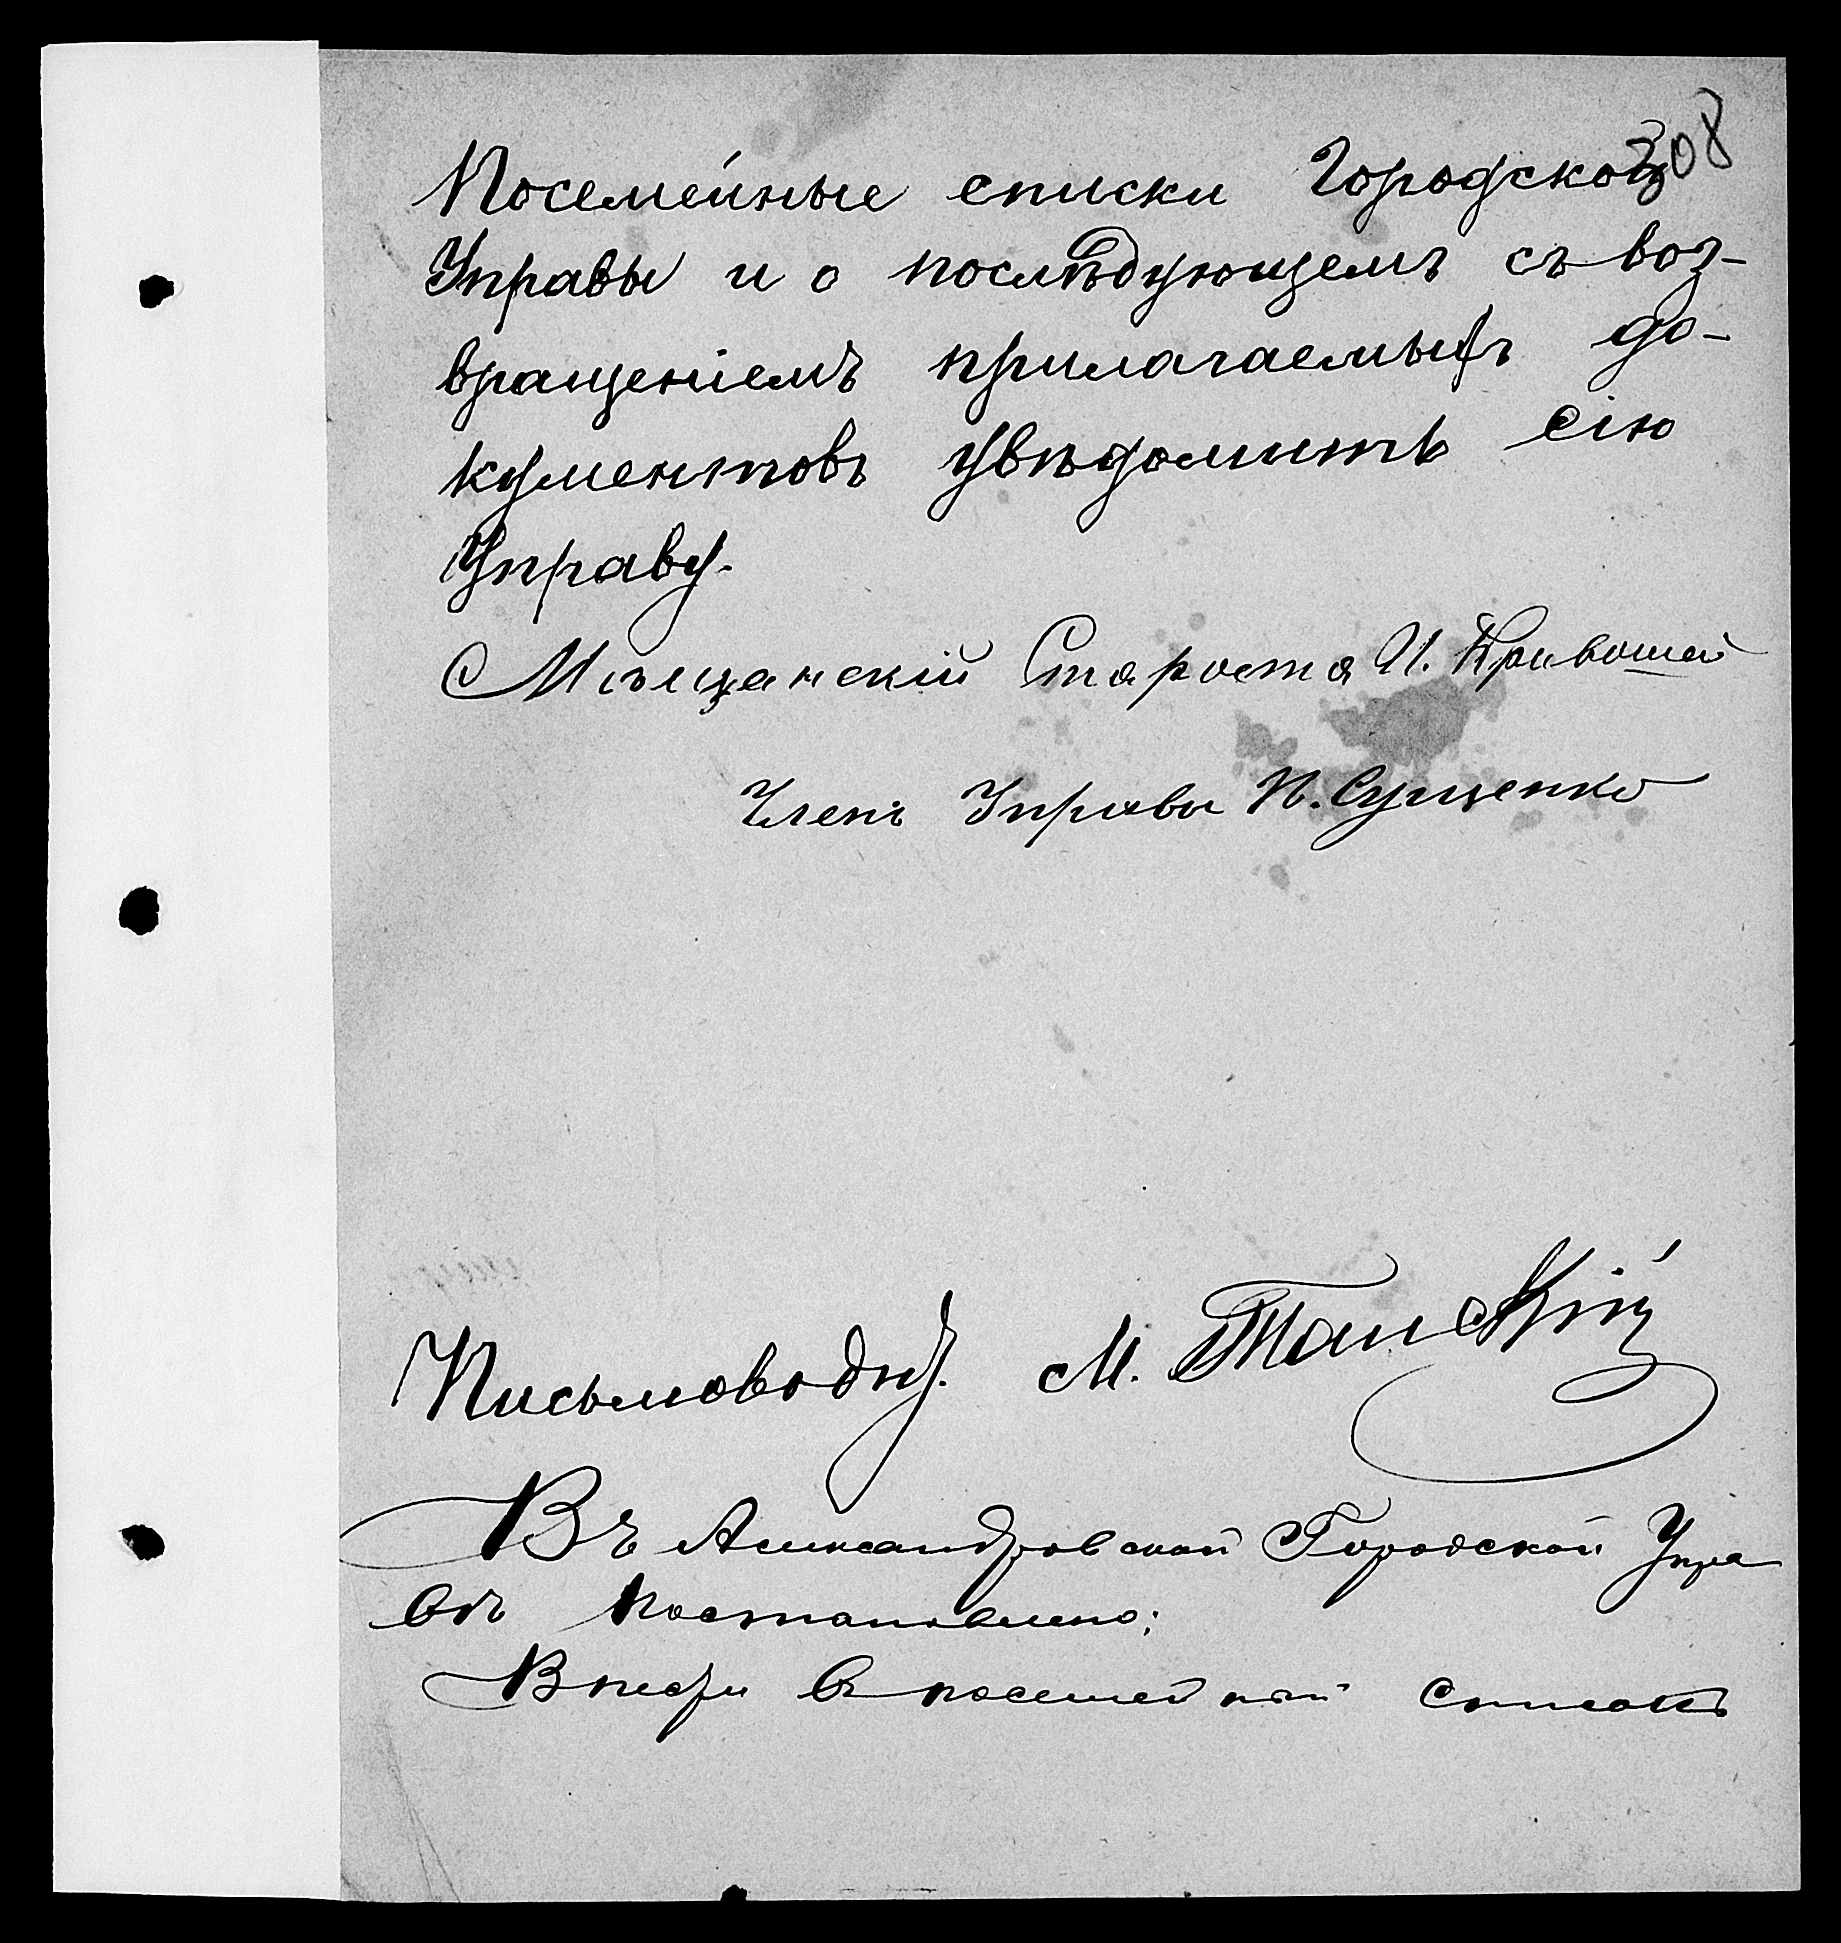 308
Посемейные списки Городской
Управы и о послѣдующемъ съ воз-
вращеніемъ прилагаемыхъ до-
кументовъ увѣдомить сію
Управу.
Мѣщанскій Староста И. Кривошей
Членъ Управы П. Сущенко
Письмовод. М. Танскій
Въ Александровской Городской Упра
вѣ постановлено:
Внести въ посемейный списокъ